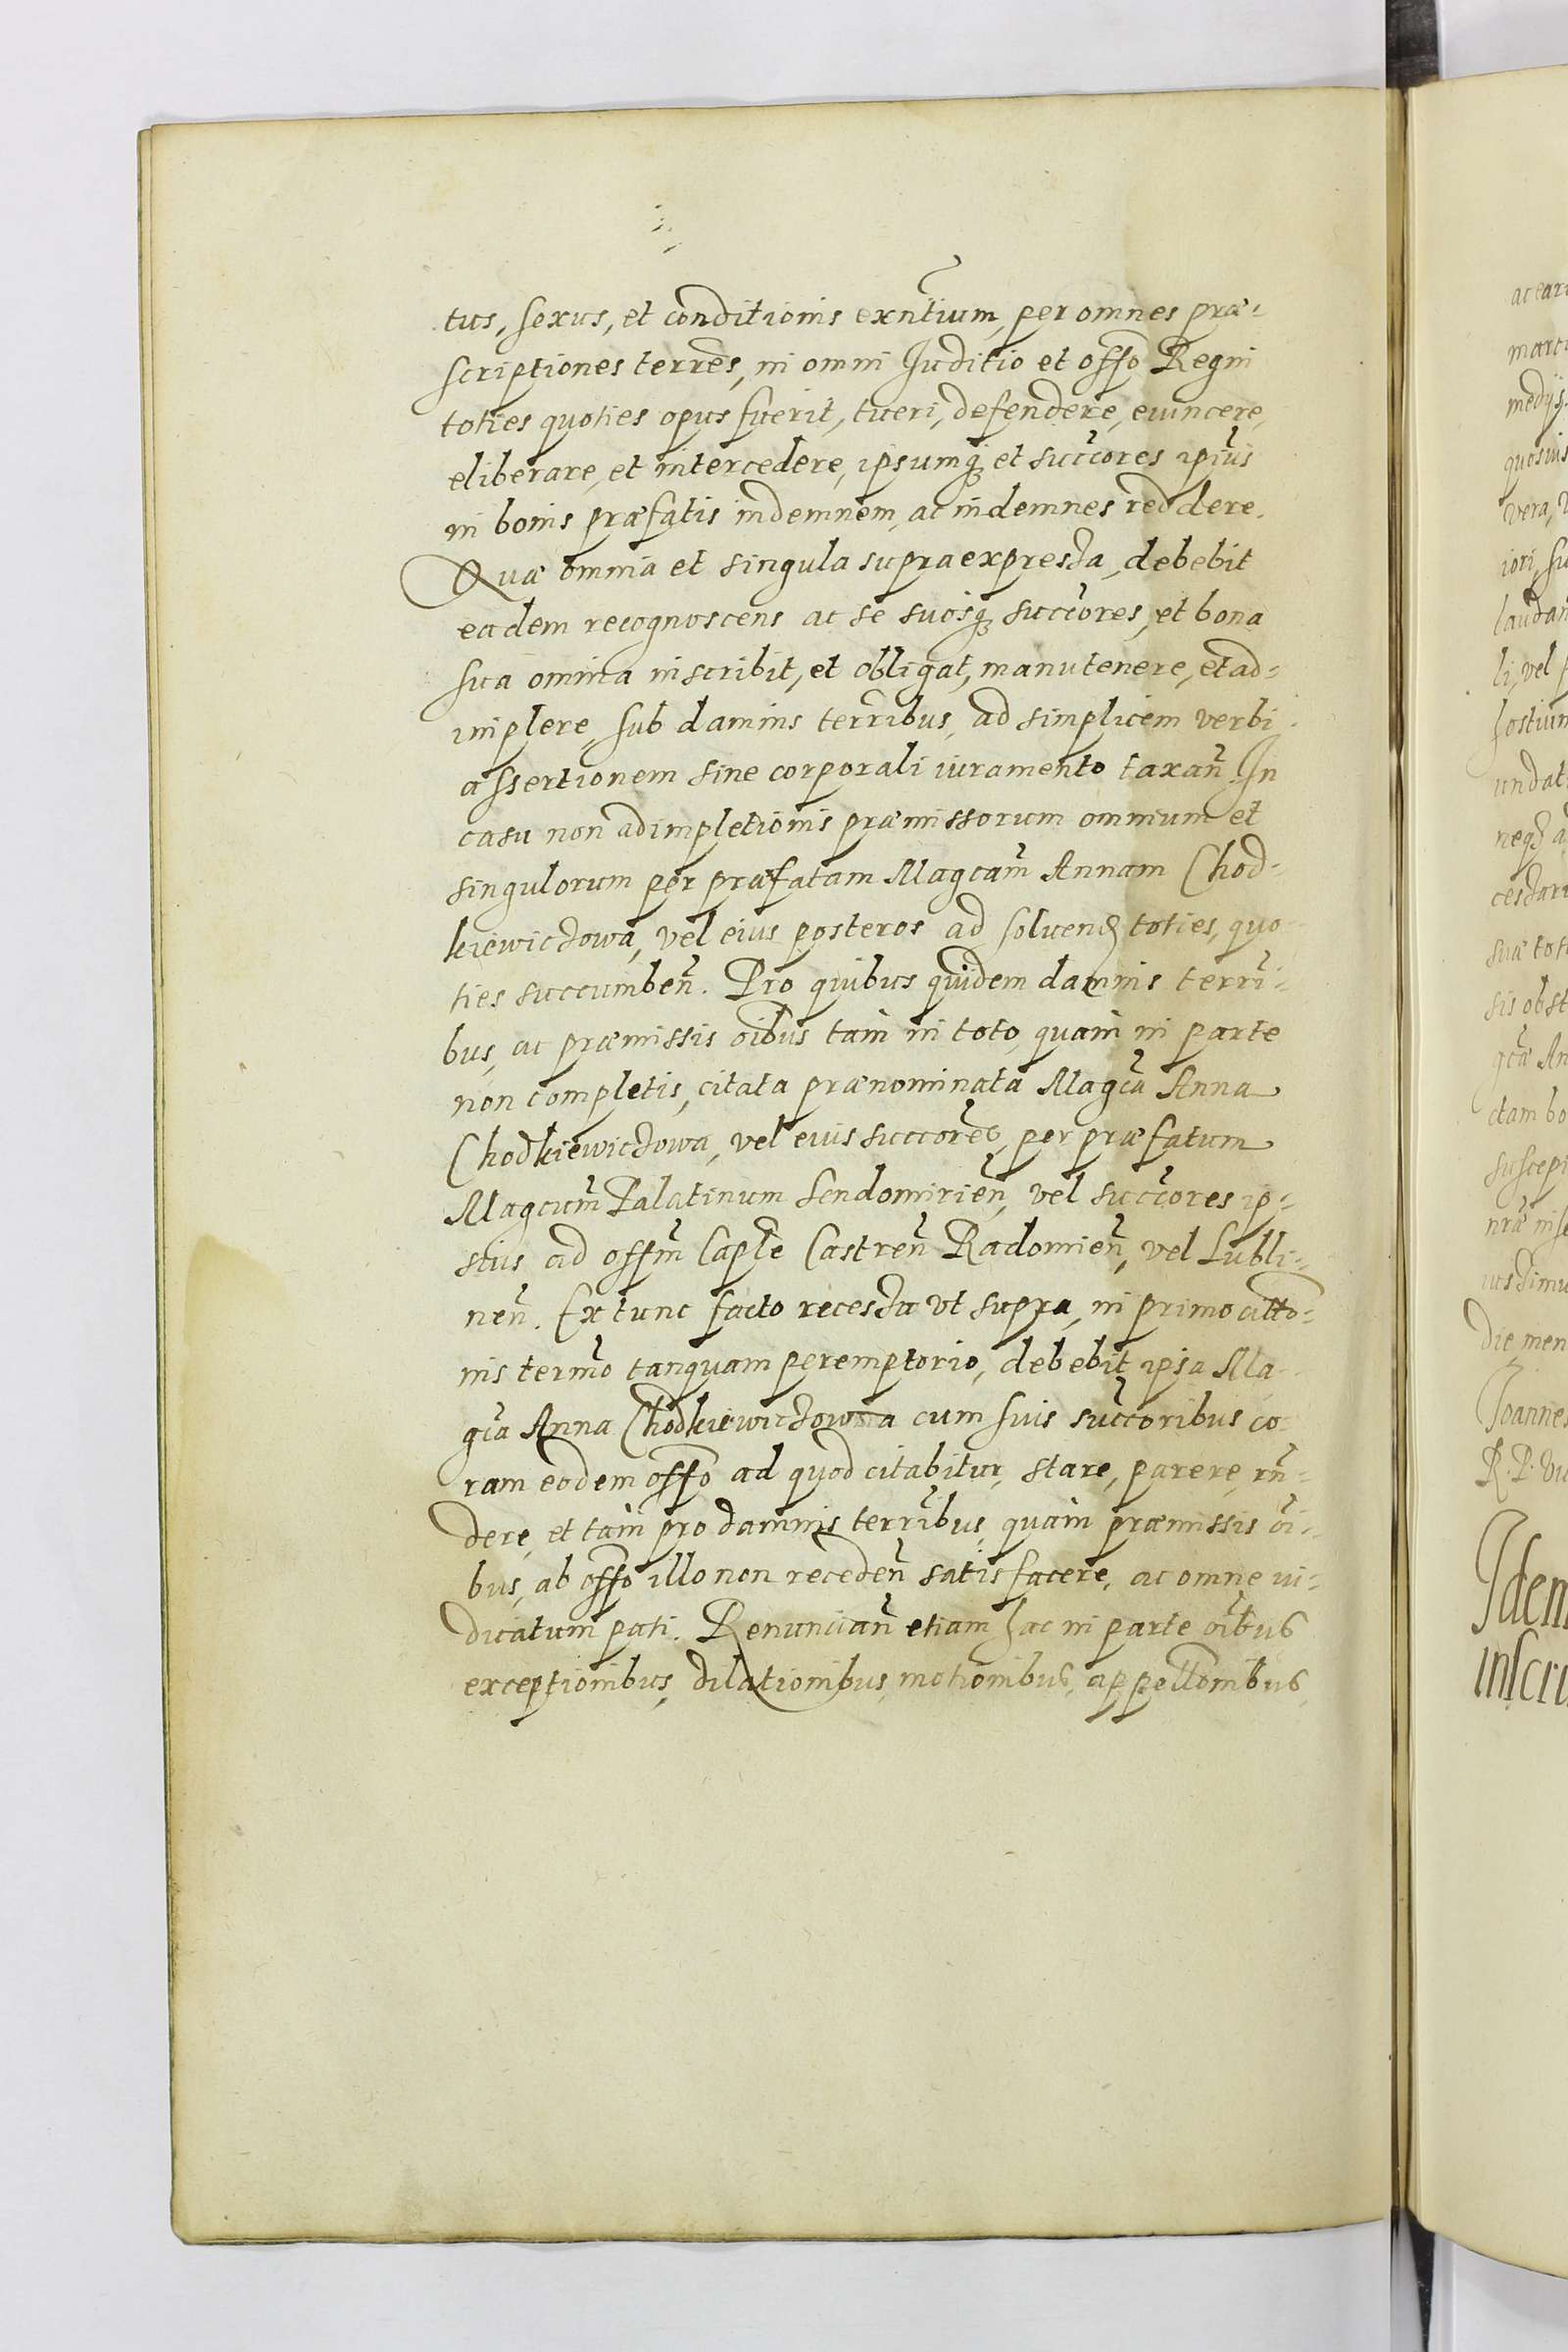 tus, sexus, et conditionis exñtium, per omnes præ-
scriptiones terrẽs, in omni Juditio et offõ Regni
toties quoties opus fuerit, tueri, defendere, euincere,
eliberare, et intercedere, ipsumq₃ et succ̃ores ipĩus
in bonis præfatis indemnem, ac indemnes reddere.
Quæ omnia et singula supra expressa, debebit
eadem recognoscens ac se suosq₃ succ̃ores, et bona
sua omnia inscribit, et obligat, manutenere, et ad-
implere, sub damnis terr̃ibus, ad simplicem verbi
assertionem sine corporali iuramento taxañ. In
casu non adimpletionis præmissorum omnium et
singulorum per præfatam Magcam̃ Annam Chod-
kiewiczowa, vel eius posteros ad soluend toties, quo-
ties succumbeñ. Pro quibus quidem damnis terrĩ-
bus, ac præmissis oĩbus tam in toto, quam in parte
non completis, citata prænominata Magc̃a Anna
Chodkiewiczowa, vel eius succorẽs, per præfatum
Magcum̃ Palatinum Sendomirieñ, vel succ̃ores ip-
sius ad offm̃ Capl̃e Castreñ Radomieñ, vel Lubli-
neñ. Ex tunc facto recessu vt supra, in primo citto-
nis term̃o tanquam peremptorio, debebit ipsa Ma-
gc̃a Anna Chodkiewiczowna cum suis succ̃oribus co-
ram eodem offõ ad quod citabitur, stare, parere, rñ-
dere, et tam pro damnis terr̃ibus, quam præmissis oĩ-
bus, ab offõ illo non recedeñ satisfacere, ac omne iu-
dicatum pati. Renunciañ etiam hac in parte oĩbus
exceptionibus, dilationibus, motionibus, appellõnibus,
Idem